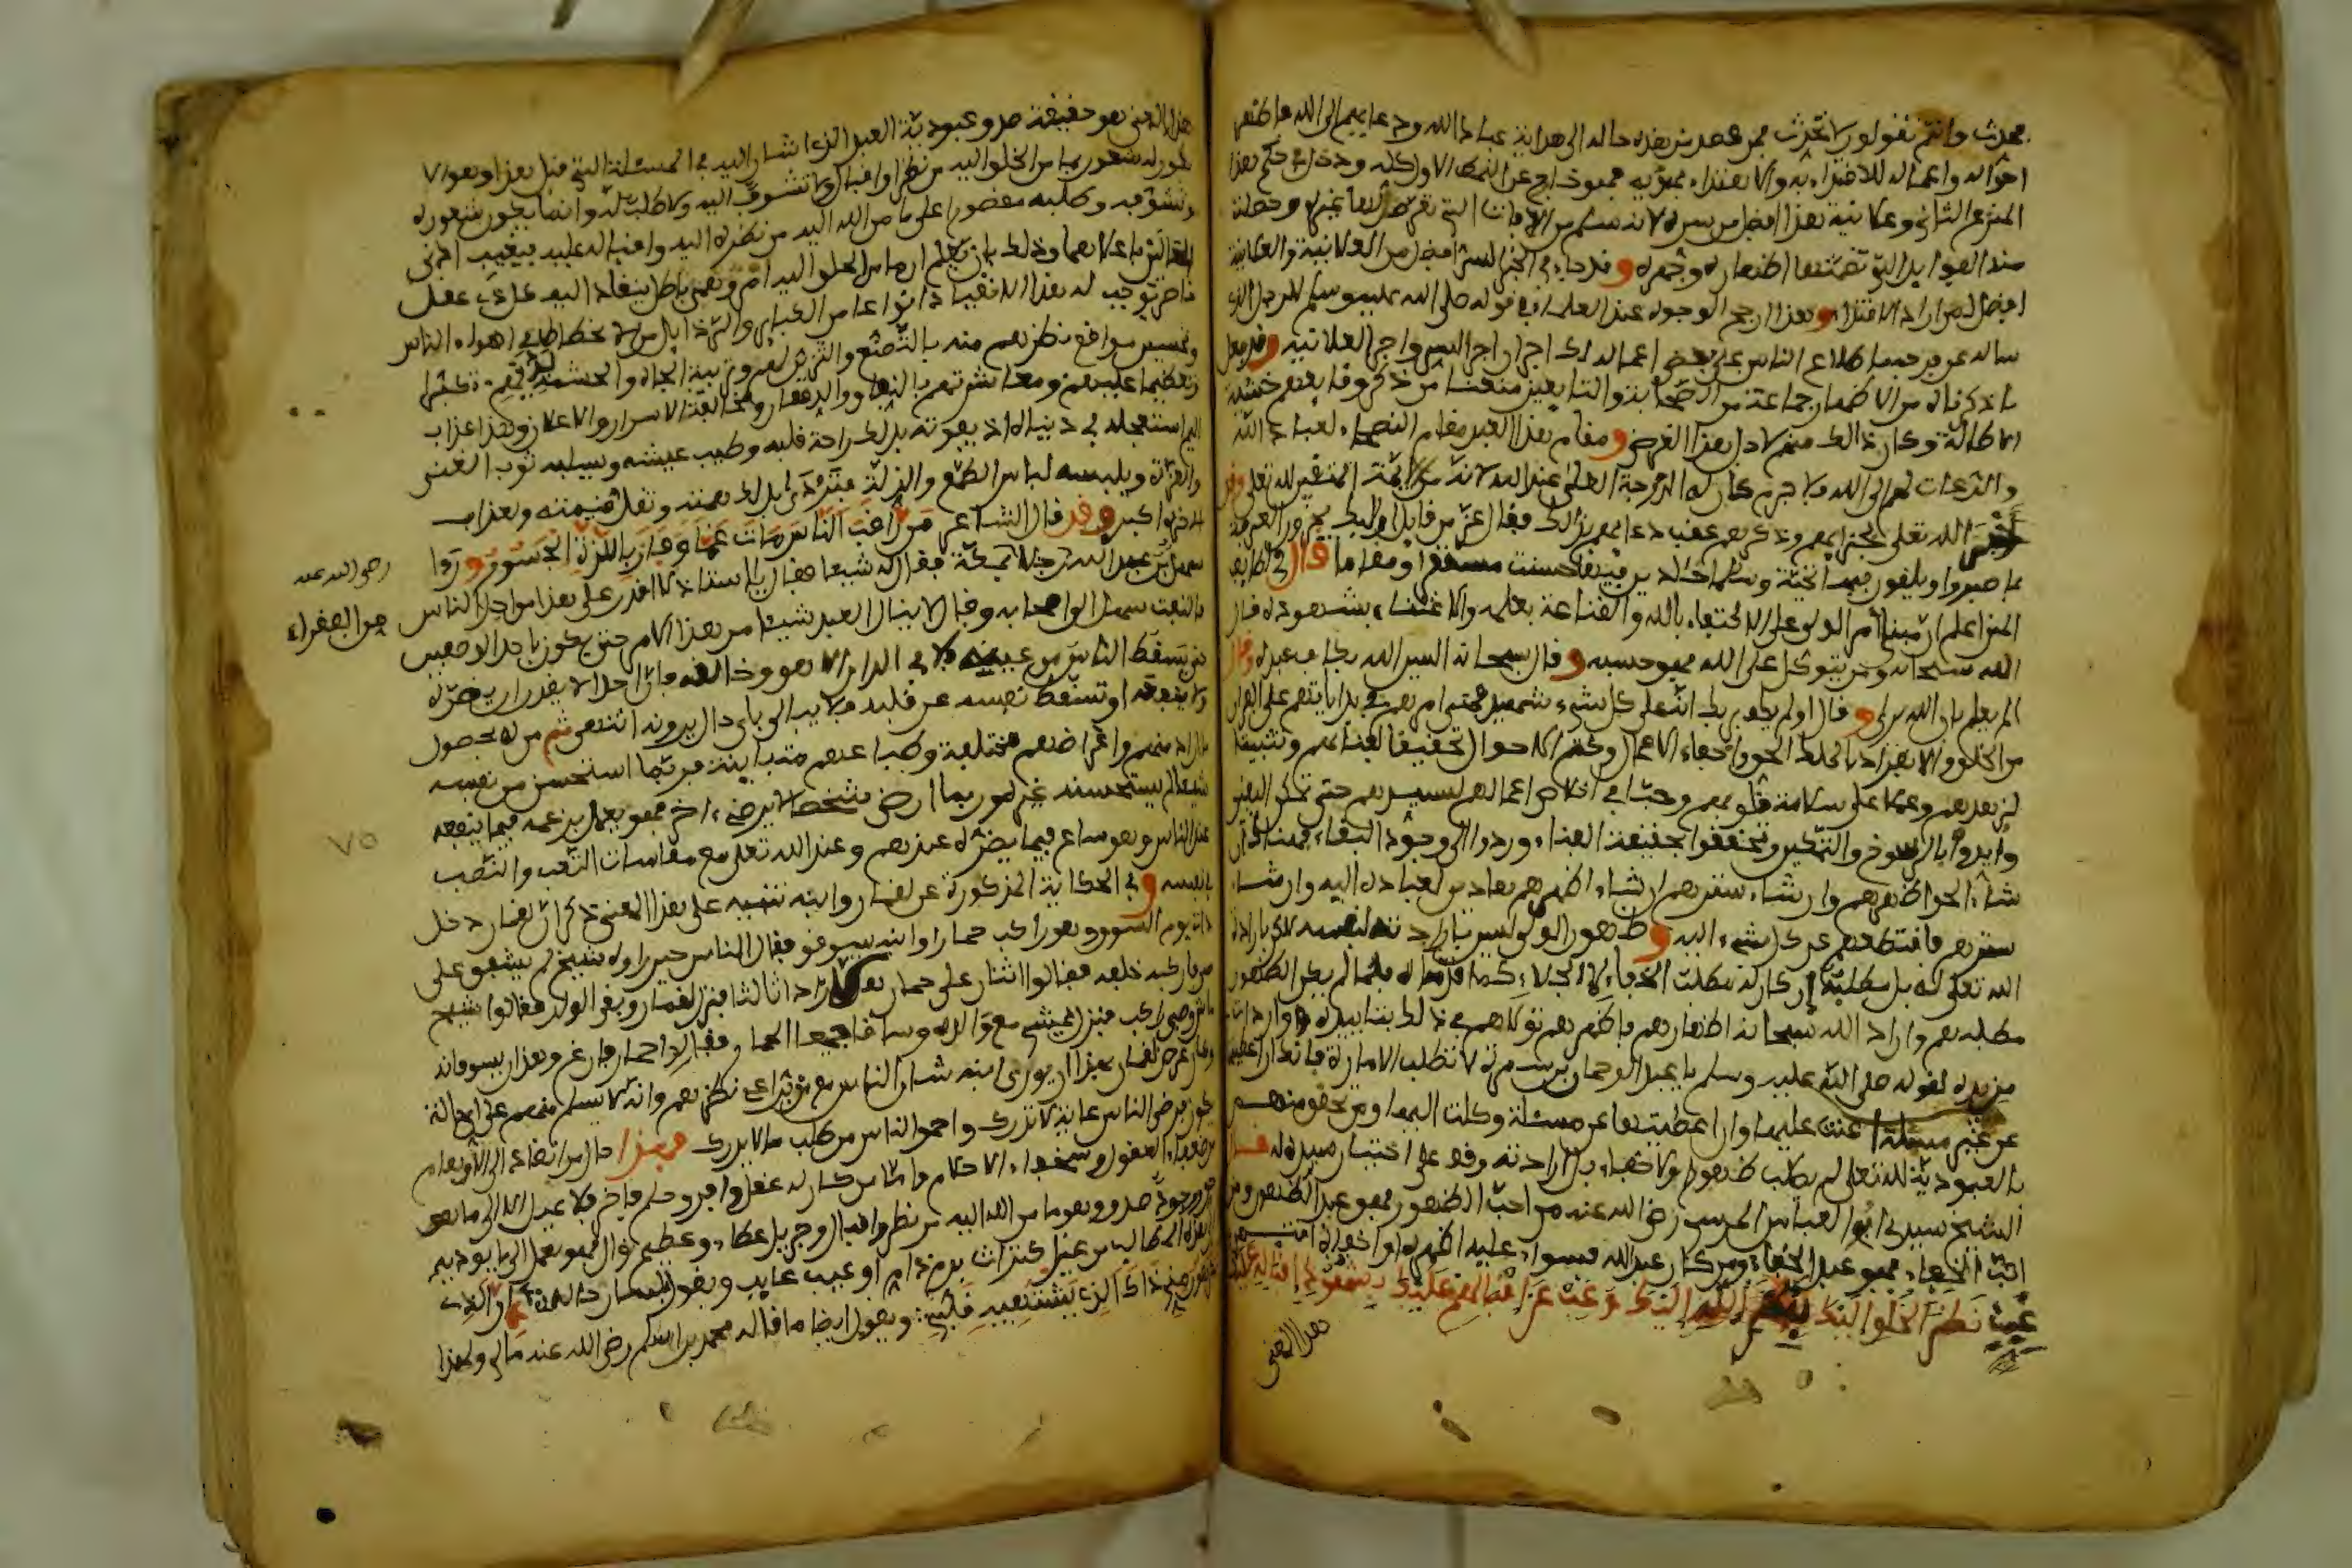 محدث وانتم تقولون لا تحدث فمن قصد من هذه حاله الى هداية عباد الله ودعايهم الى الله فاظهر
احواله واعماله للاقتداء به والاهتداء بهديه فهو خارج عن النمط الاول كله وداخل في حكم هذا
النوع الثاني وعلانية هذا افضل من سره لانه سلم من الافات التي تعرض لها غيره وحصلت
منه الفوايد التي تضمنها اظهاره وجهره وقد جاء في الخبر السر افضل من العلانية والعلانية
افضل لمن اراد الاقتداء وهذا ارجح الوجوه عند العلماء في قوله صلى الله عليه وسلم للرجل الذي
ساله عن فرحه باطلاع الناس على بعض اعماله لك اجران اجر السر واجر العلانية وقد فعل
ما ذكرناه من الاظهار جماعة من الصحابة والتابعين منعنا من ذكر وقايعهم خشية
الاطالة وكان ذالك منهم لاجل هذا الغرض ومقام هذا العبد مقام النصحاء لعباد الله
والدعات لهم الى الله فلا جرم كان له الدرجة العلى عند الله لانه من ايمة المتقين لله تعلى وقد
اخبر الله تعلى بجزايهم وذكرهم عقب دعايهم بذالك فقال عز من قايل اوليك يجزون الغرفة
بما صبروا ويلقون فيها تحية وسلاما خالدين فيها حسنت مستقرا ومقاما قال في لطايف
المنن اعلم ان مبنى امر الولي على الاكتفاء بالله والقناعة بعلمه والاغتناء بشهوده قال
الله سبحانه ومن يتوكل على الله فهو حسبه وقال سبحانه اليس الله بكاف عبده وقال
الم يعلم بان الله يرى وقال اولم يكف بربك انه على كل شيء شهيد فمبنى امرهم في بداياتهم على الفرار
من الخلق والانفراد بالملك الحق واخفاء الاعمال وكتم الاحوال تحقيقا لفنايهم وتثبيتا
لزهدهم وعملا على سلامة قلوبهم وحبا في اخلاص اعمالهم لسيدهم حتى تمكن اليقين
وايدوا بالرسوخ والتمكين وتحققوا بحقيقة الفناء وردوا الى وجود البقاء فهناك ان
شاء الحق اظهرهم وان شاء سترهم ان شاء اظهرهم هادين لعباده اليه وان شاء
سترهم فاقتطعهم عن كل شيء اليه وظهور الولي ليس بارادته لنفسه لاكن بارادة
الله تعلى له بل مطلبه ان كان له مطلب الخفاء لا الجلاء كما قدمناه فلما لم يكن الظهور
مطلبهم واراد الله سبحانه اظهارهم فاظهرهم تولاهم في ذلك بتاييده وواردات
مزيده لقوله صلى الله عليه وسلم يا عبد الرحمان بن سمرة لا تطلب الامارة فانك ان اعطيتها
عن غير مسئلة اعنت عليها وان اعطيتها عن مسئلة وكلت اليها ومن تحقق منهم
بالعبودية لله تعلى لم يطلب ظهورا ولا خفاء بل ارادته وقف على اختيار سيده له قال
الشيخ سيدي ابو العباس المرسي رضي الله عنه من احب الظهور فهو عبد الظهور ومن
احب الخفاء فهو عبد الخفاء ومن كان عبد الله فسواء عليه اظهره او اخفاه انتهى
غيب نظر الخلق اليك بنظر الله اليك وغب عن اقبالهم عليك بشهود اقباله عليك
هذا المعنى
هذا المعنى هو حقيقة صدق عبودية العبد الذي اشار اليه في المسئلة التي قبل هذا وهو ان لا
يكون له شعور بما من الخلق اليه من نظر او اقبال ولا تشوف اليه ولا طلب له وانما يكون شعوره
وتشوفه وطلبه مقصورا على ما من الله اليه من نظره اليه واقباله عليه فيغيب ادنى
الحالين باعلاهما وذلك بان يعلم ان ما من الخلق اليه امر وهمي باطل ينقاد اليه كل ذي عقل
قاصر توجب له هذا الانقياد انواعا من الكباير والرذايل من سلامة حظاظه في اهواء الناس
وتحسين مواقع نظرهم منه بالتصنع والتزين لهم وتربية الجاه والحشمة لديهم تكبرا
وتعظيما عليهم ومعاشرتهم بالنفاق والدهقنة ومخالفة الاسرار والاعلان وهذا عذاب
اليم استعجله في دنياه اذ يفوته بذلك راحة قلبه وطيب عيشه ويسلبه ثوب الغنى
والعزة ويلبسه لباس الطمع والذلة فتزدى بذلك همته وتقل قيمته ولعذاب
الاخرة اكبر وقد قال الشاعر من راقب الناس مات غما وفاز باللذة الجسور وروا
سهل بن عبد الله رجلا بمكة فقال له شيعا فقال يا استاذ لا اقدر على هذا من اجل الناس
فالتفت سهل الى اصحابه وقال لا ينال العبد شيعا من هذا الامر حتى يكون باحد الوصفين
حتى يسقط الناس من عينه فلا يرى في الدار الا هو وخالقه فان احدا لا يقدر ان يضره
ولا ينفعه او تسقط نفسه عن قلبه فلا يبالي باي حال يرونه انتهى ثم من له بحصول
مراده منهم واغراضهم مختلفة وطباعهم متباينة فربما استحسن من نفسه
شيعا لم يستحسنه غيره وربما ارضى شخصا لا يرضى اخر فهو يعمل بزعمه فيما ينفعه
عند الناس وهو ساع فيما يضره عندهم وعند الله تعلى مع مقاسات التعب والنصب
بنفسه وفي الحكاية المذكورة عن لقمان وابنه تنبيه على هذا المعنى ذكر ان لقمان دخل
ذات يوم السوق وهو راكب حمارا وابنه يسوقه فقال الناس حين راوه شيخ لم يشفق على
صبي فاركبه خلفه فقالوا اثنان على حمار هلا زاد ثالثا فنزل لقمان وبقي الولد فقالوا شيخ
ماش وصبي راكب فنزل يمشي مع والده وساقا جميعا الحمار فقالوا حمار فارغ وهذان يسوقانه
وكان غرض لقمان بهذا ان يوري ابنه شان الناس مع من يراعي نظرهم وانه لا يسلم منهم على اي حالة
يكون فرضى الناس غاية لا تدرك واحمق الناس من طلب ما لا يدرك فهذا حال من انقاد الى الاوهام
من ضعفاء العقول وسخفاء الاحلام فاما من كان له عقل وافر وحلم فاخر فلا يميل الا الى ما هو
حق موجود صدق وهو ما من الله اليه من نظر واقبال وجزيل عطاء وعظيم نوال فهو يعمل الى ما يوديه
الى هذه المطالب من غير اكتراث بذم ذام او عيب عايب ويقول بلسان حاله
ان الذي
غير ذاك الذي يشتهيه قلبي ويقول ايضا ما قاله محمد بن اسلم رضي الله عنه مالي ولهذا
رضي الله عنه
من الفقراء
٧٥